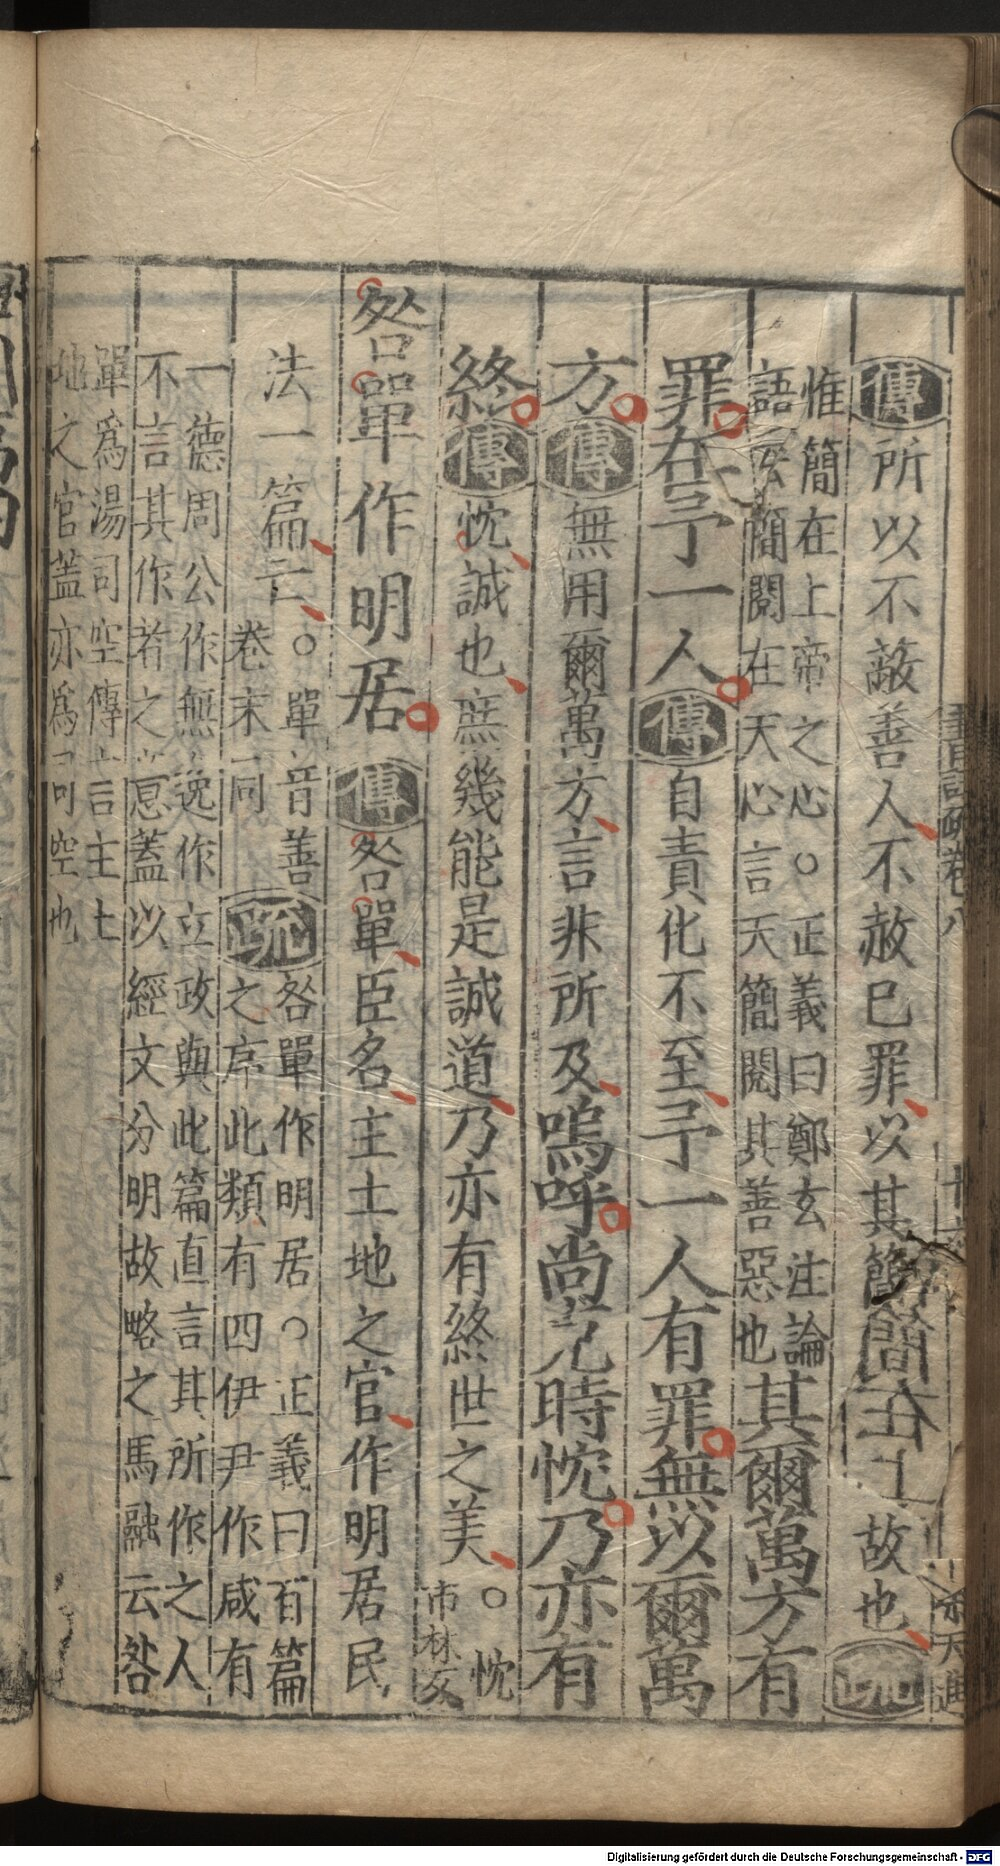 書註疏卷八
傳所以不蔽善人不赦已罪以其簡簡在上故也疏
惟簡在上帝之心○正義曰鄭玄注論
語云簡閱在天心言天簡閱其善惡也其爾萬方有
罪在予一人傳自責化不至予一人有罪無以爾萬
方傳無用爾萬方言非所及嗚呼尚克時忱乃亦有
終傳忱誠也庶幾能是誠道乃亦有終世之美○忱
市林反
咎單作明居傳咎單臣名主土地之官作明居民
法一篇亡○單音善
卷末同疏咎單作明居○正義曰百篇
之序此類有四伊尹作咸有
一德周公作無逸作立政與此篇直言其所作之人
不言其作者之意蓋以經文分明故略之馬融云咎
單爲湯司空傳言主土
地之官蓋亦爲司空也
Digitalisierung gefördert durch die Deutsche Forschungsgemeinschaft - DFG